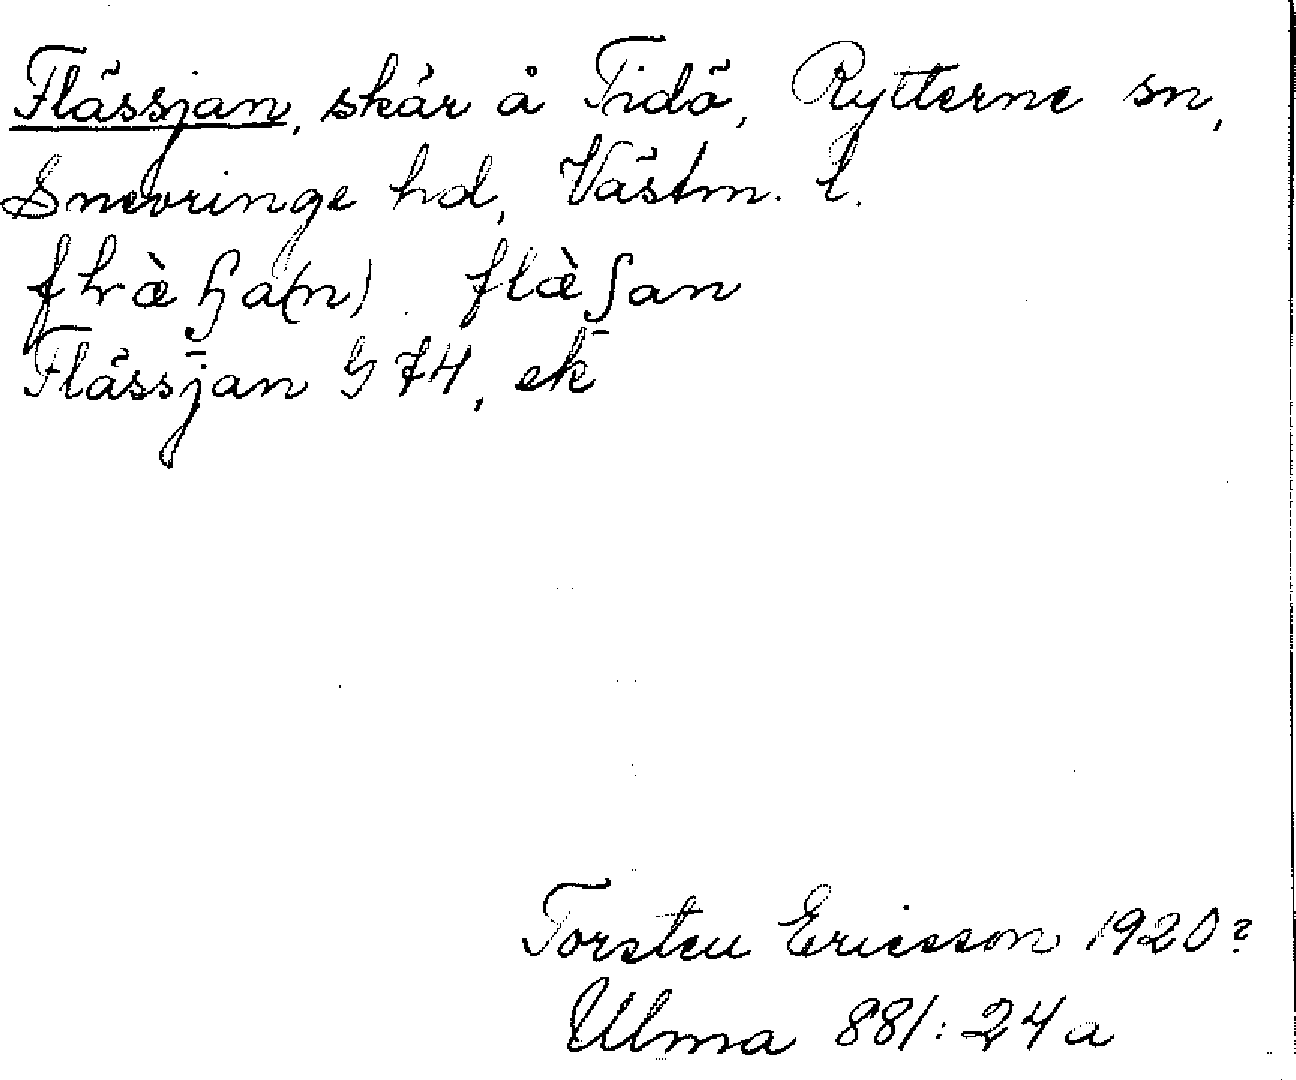 Flässjan, skär å Tidö, Rytterne sn,
Snevringe hd, Västm. l.
flæ̀ʃan
Flässjan G 74, ek
Torsten Ericsson 1920?
Ulma 881:24a